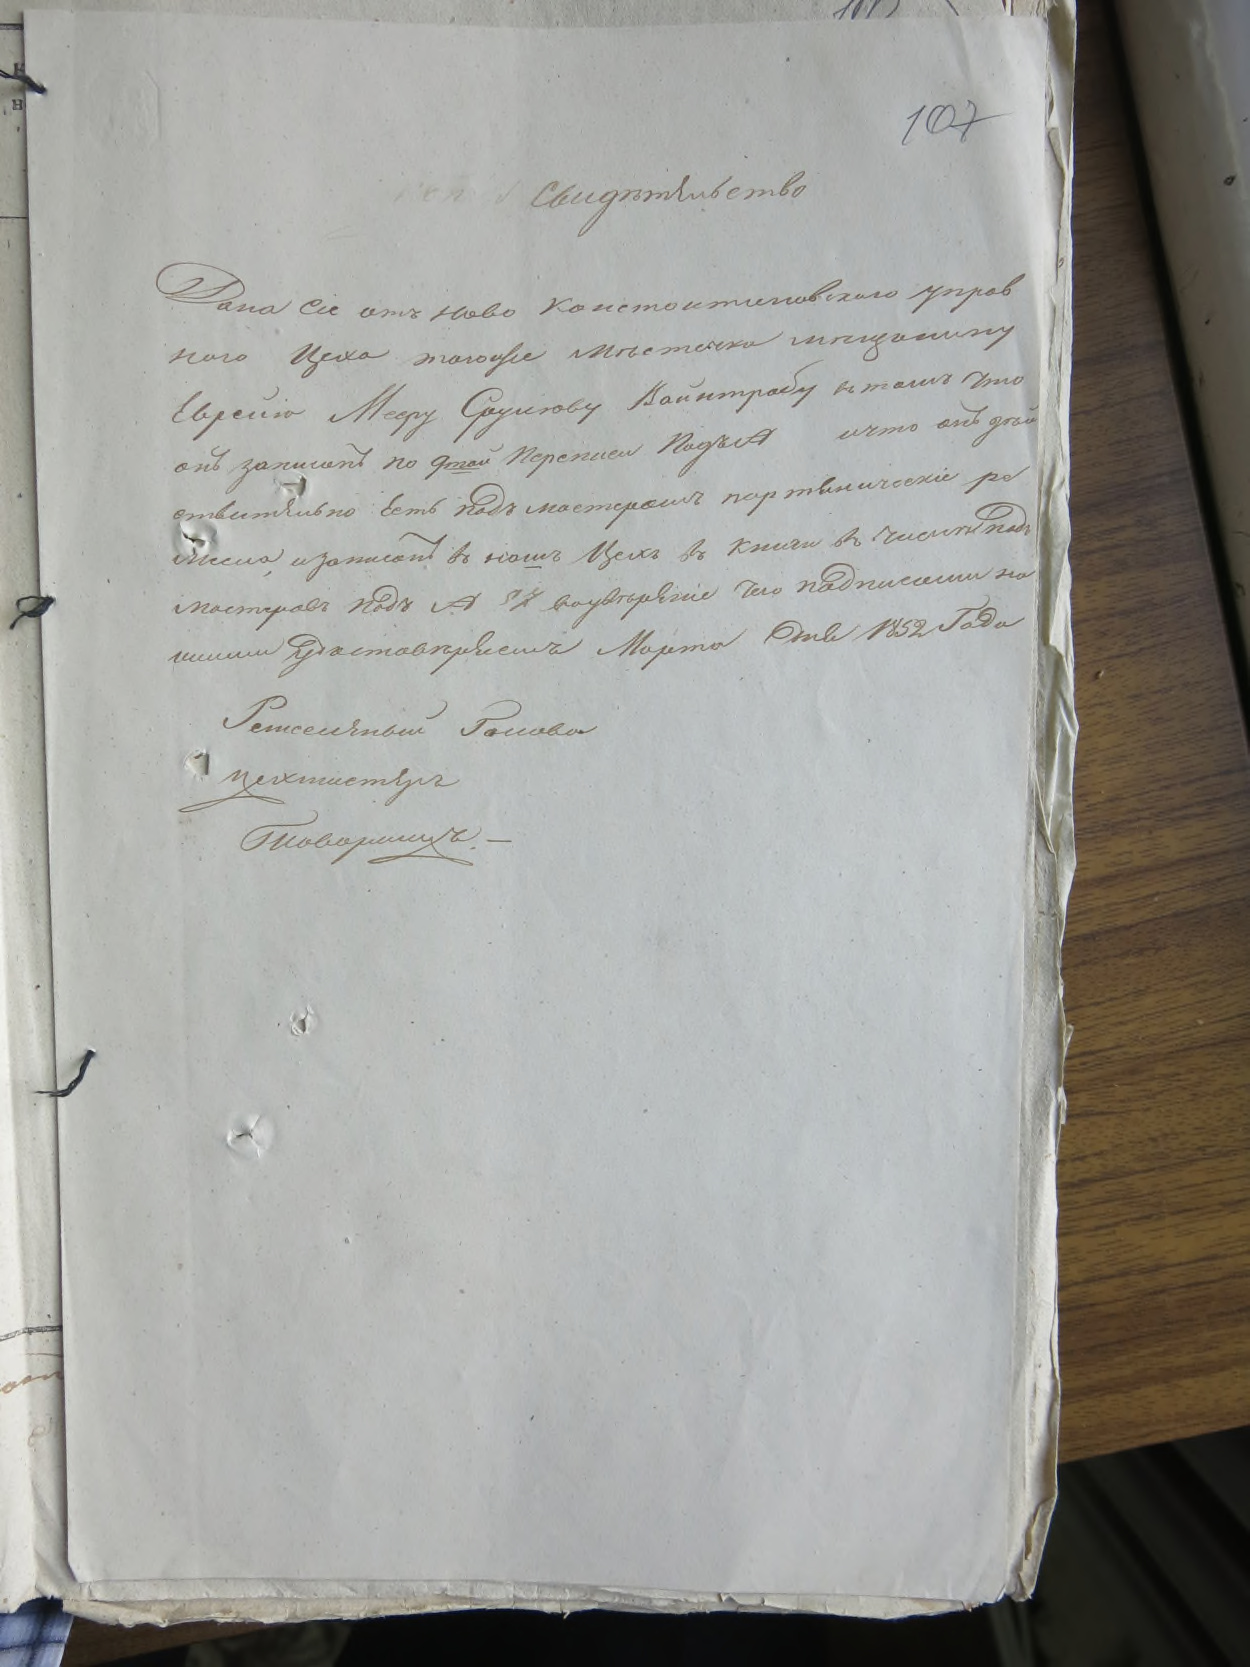 107
Свидѣтельство
Дана Сіе отъ Ново Константиновского управ
ного Цеха тогоже Мѣстечка мѣщанину
Еврейю Мееру Сруликову Вайнтрабу въ томъ что
онъ записанъ по 9той Переписи Подъ №   и что онъ дѣй
ствительно Есть подъ мастеромъ портническіе ре
месла, и записанъ въ нашъ Цехъ въ Книги въ Числѣ подъ
мастеровъ подъ № 57 воувѣреніе Чего подписами на
шими удостовѣряемъ Марта Дня 1852 Года
Ремесленый Голова
Цехмистеръ
Товарищъ. —